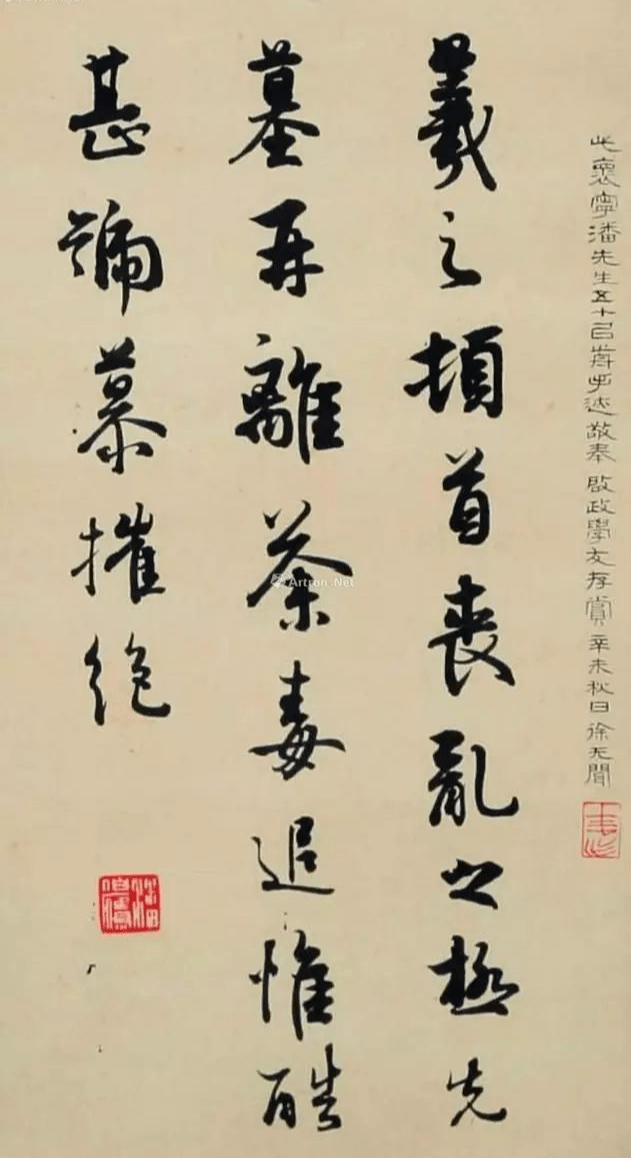 此裛寧潘先生五十日前手迹敬奉啟政學友存賞辛未秋日徐无聞
羲之頓首喪亂之極先
墓再離荼毒追惟酷
甚號慕摧絕
Artron.Net